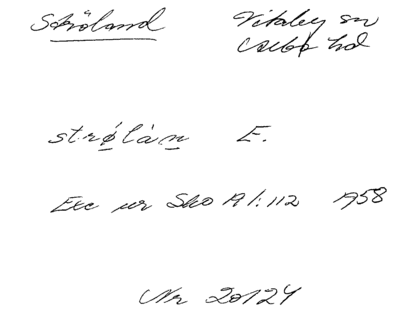 Ströland Vitaby sn
Albo hd
strǿlàn E.
Exc ur Sko A 1:112 1958
Nr 20124